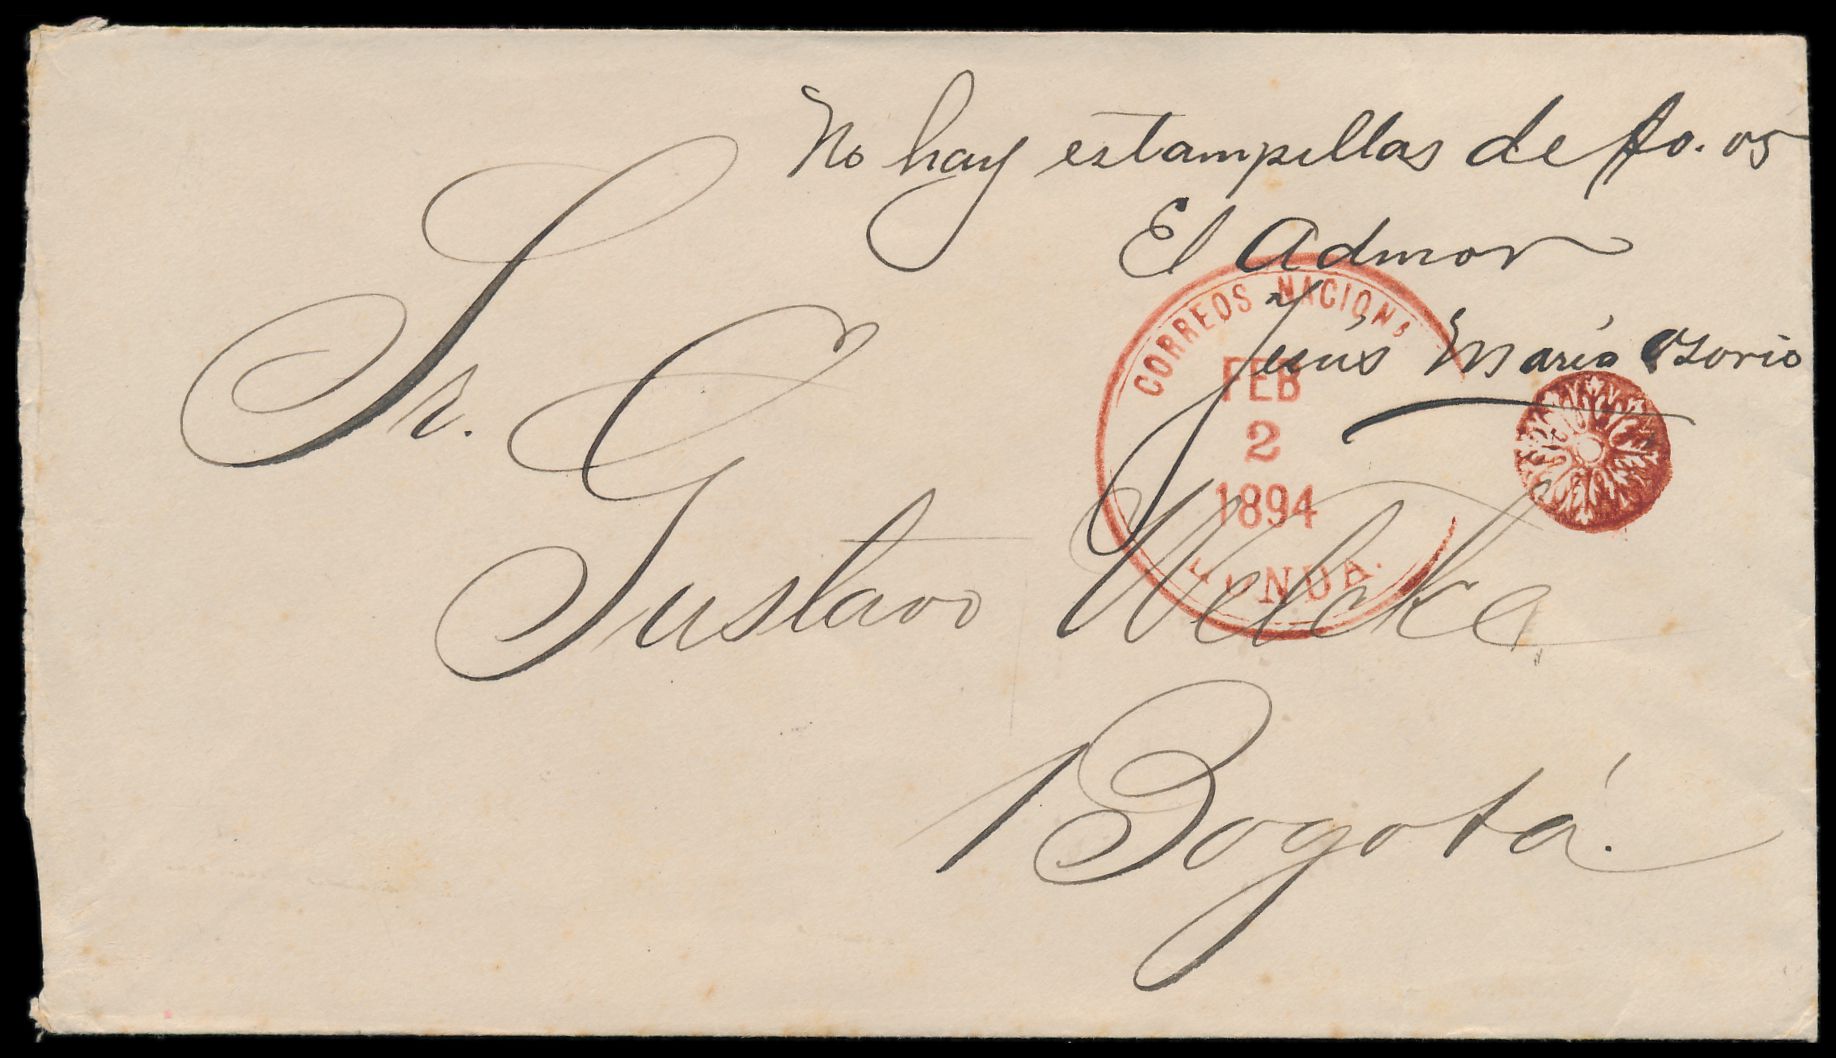 No hay estampillas de $0.05
El Admor
Jesus María Ozorio
CORREOS NACIONA
FEB
2
1894
HONDA.
Sr.
Gustavo Welcke
Bogotá.